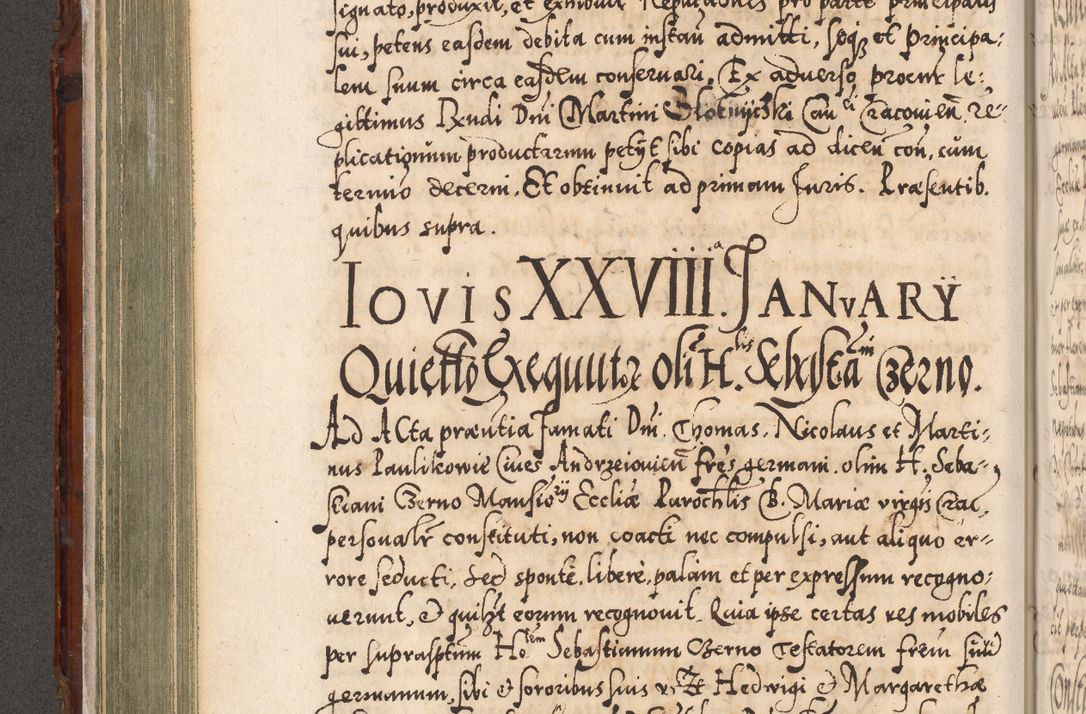 signato, produxit, et exhibuit Reputationes pro parte principalis
sui, petens easdem debita cum instan admitti, seqz et Principa-
lem suum circa easdem conservari. Ex adverso proent le-
gittimus Rndi Dni Martini Can Cracovien, re-
plicationum productarum petyt sibi copias ad dicen con, cum
termino decerni. Et obtinuit ad primam Juris. Præsentib.
quibus supra.
Iovis XXVIIIIa. JANvARŸ
Quietto Exequutor olim H.lis Sebastiani Czerno.
Ad Acta præntia famati Dni. Thomas, Nicolaus et Marti-
nus Paulikowie Cives Andrzeiovien frēs germani olim H. Seba-
stiani Czerno Mansio Eccliæ Parochlis B. Mariæ virgis Crac,
personalr constituti, non coacti nec compulsi, aut aliquo er-
rore seducti, sed spontē, liberè, palàm et per expressum recogno-
verunt, & quilzt eorum recognovit. Quia ipse certas res mobiles
per suprasptum Ho.lem Sebastianum Czerno Testatorem frem suū
germanum, sibi & sororibus suis Hedwigi & Margarethæ